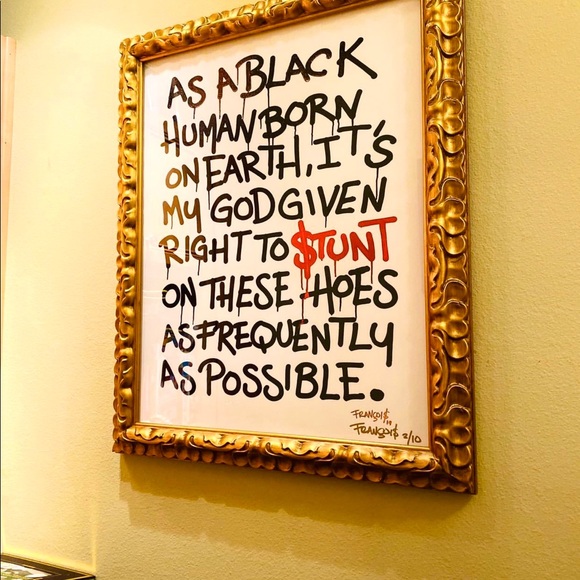 AS A BLACK
HUMAN BORN
ON EARTH, IT'S
MY GOD GIVEN
RIGHT TO $TUNT
ON THESE HOES
AS FREQUENTLY
AS POSSIBLE.
FRANÇOI$
FRANÇOI$ 2/10